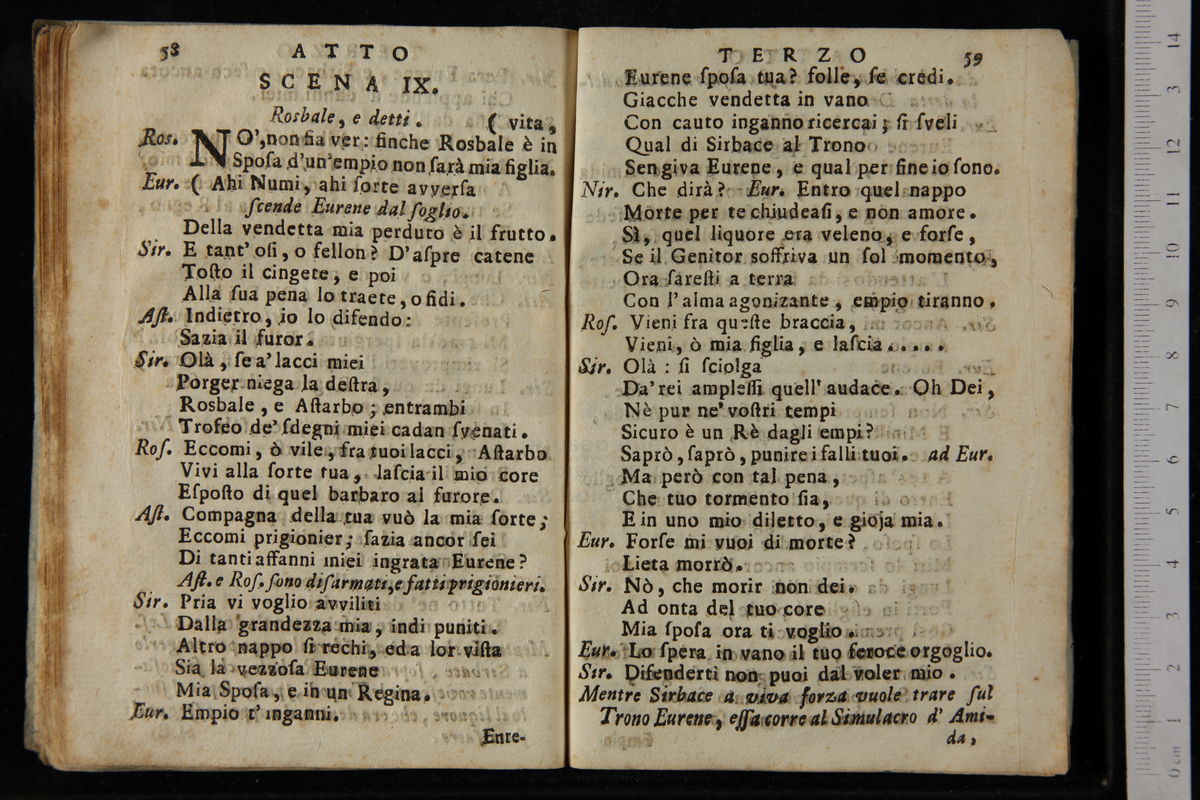 58 ATTO
SCENA IX.
Rosbale, e detti. ( vita,
Ros. NO', non fia ver: finche Rosbale è in
Spoſa d'un'empio non ſarà mia figlia.
Eur. ( Ahi Numi, ahi ſorte avverſa
ſcende Eurene dal ſoglio.
Della vendetta mia perduto è il frutto.
Sir. E tant' oſi, o fellon? D'aſpre catene
Toſto il cingete, e poi
Alla ſua pena lo traete, o fidi.
Aſt. Indietro, io lo difendo:
Sazia il furor.
Sir. Olà, ſe a' lacci miei
Porger niega la deſtra,
Rosbale, e Aſtarbo; entrambi
Trofeo de' ſdegni miei cadan ſvenati.
Roſ. Eccomi, ò vile, fra tuoi lacci, Aſtarbo
Vivi alla ſorte tua, laſcia il mio core
Eſpoſto di quel barbaro al furore.
Aſt. Compagna della tua vuò la mia ſorte;
Eccomi prigionier; ſazia ancor ſei
Di tanti affanni miei ingrata Eurene?
Aſt. e Roſ. ſono diſarmati, e fatti prigionieri.
Sir. Pria vi voglio avviliti
Dalla grandezza mia, indi puniti.
Altro nappo ſi rechi, ed a lor viſta
Sia la vezzoſa Eurene
Mia Spoſa, e in un Regina.
Eur. Empio t'inganni.
Eure-
TERZO 59
Eurene ſpoſa tua? folle, ſe credi.
Giacche vendetta in vano
Con cauto inganno ricercai; ſi ſveli
Qual di Sirbace al Trono
Sen giva Eurene, e qual per fine io ſono.
Nir. Che dirà? Eur. Entro quel nappo
Morte per te chiudeaſi, e non amore.
Sì, quel liquore era veleno, e forſe,
Se il Genitor soffriva un ſol momento,
Ora ſareſti a terra
Con l'alma agonizante, empio tiranno.
Roſ. Vieni fra queſte braccia,
Vieni, ò mia figlia, e laſcia.....
Sir. Olà: ſi ſciolga
Da' rei ampleſſi quell' audace. Oh Dei,
Nè pur ne' voſtri tempi
Sicuro è un Rè dagli empi?
Saprò, ſaprò, punire i falli tuoi. ad Eur.
Ma però con tal pena,
Che tuo tormento ſia,
E in uno mio diletto, e gioja mia.
Eur. Forſe mi vuoi di morte?
Lieta morrò.
Sir. Nò, che morir non dei.
Ad onta del tuo core
Mia ſpoſa ora ti voglio.
Eur. Lo ſpera in vano il tuo feroce orgoglio.
Sir. Difenderti non puoi dal voler mio.
Mentre Sirbace a viva forza vuole trare ſul
Trono Eurene, eſſa corre al Simulacro d' Ami-
da,